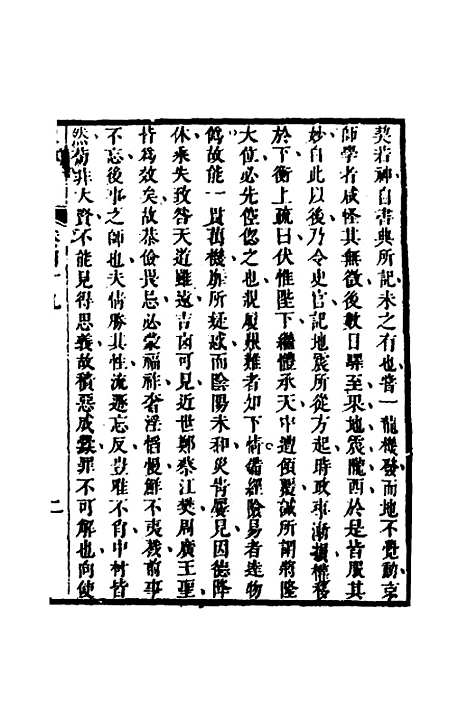 契若神自書典所記未之有也嘗一龍機發而地不覺動京
師學者咸怪其無徵後數日驛至果地震隴西於是皆服其
妙自此以後乃令史官記地震所從方起時政事漸損權移
於下衡上疏曰伏惟陛下繼體承天中遭傾覆誠所謂將隆
大位必先倥傯之也親履艱難者知下情備經險易者達物
偽故能一貫萬機靡所疑惑而陰陽未和災眚屢見因德降
休乘失致咎天道雖遠吉凶可見近世鄭蔡江樊周廣王聖
皆為效矣故恭儉畏忌必蒙福祚奢淫慆慢鮮不夷戮前事
不忘後事之師也夫情勝其性流遯忘反豈唯不肖中材皆
然苟非大賢不能見得思義故積惡成釁罪不可解也向使
卷百十九
二